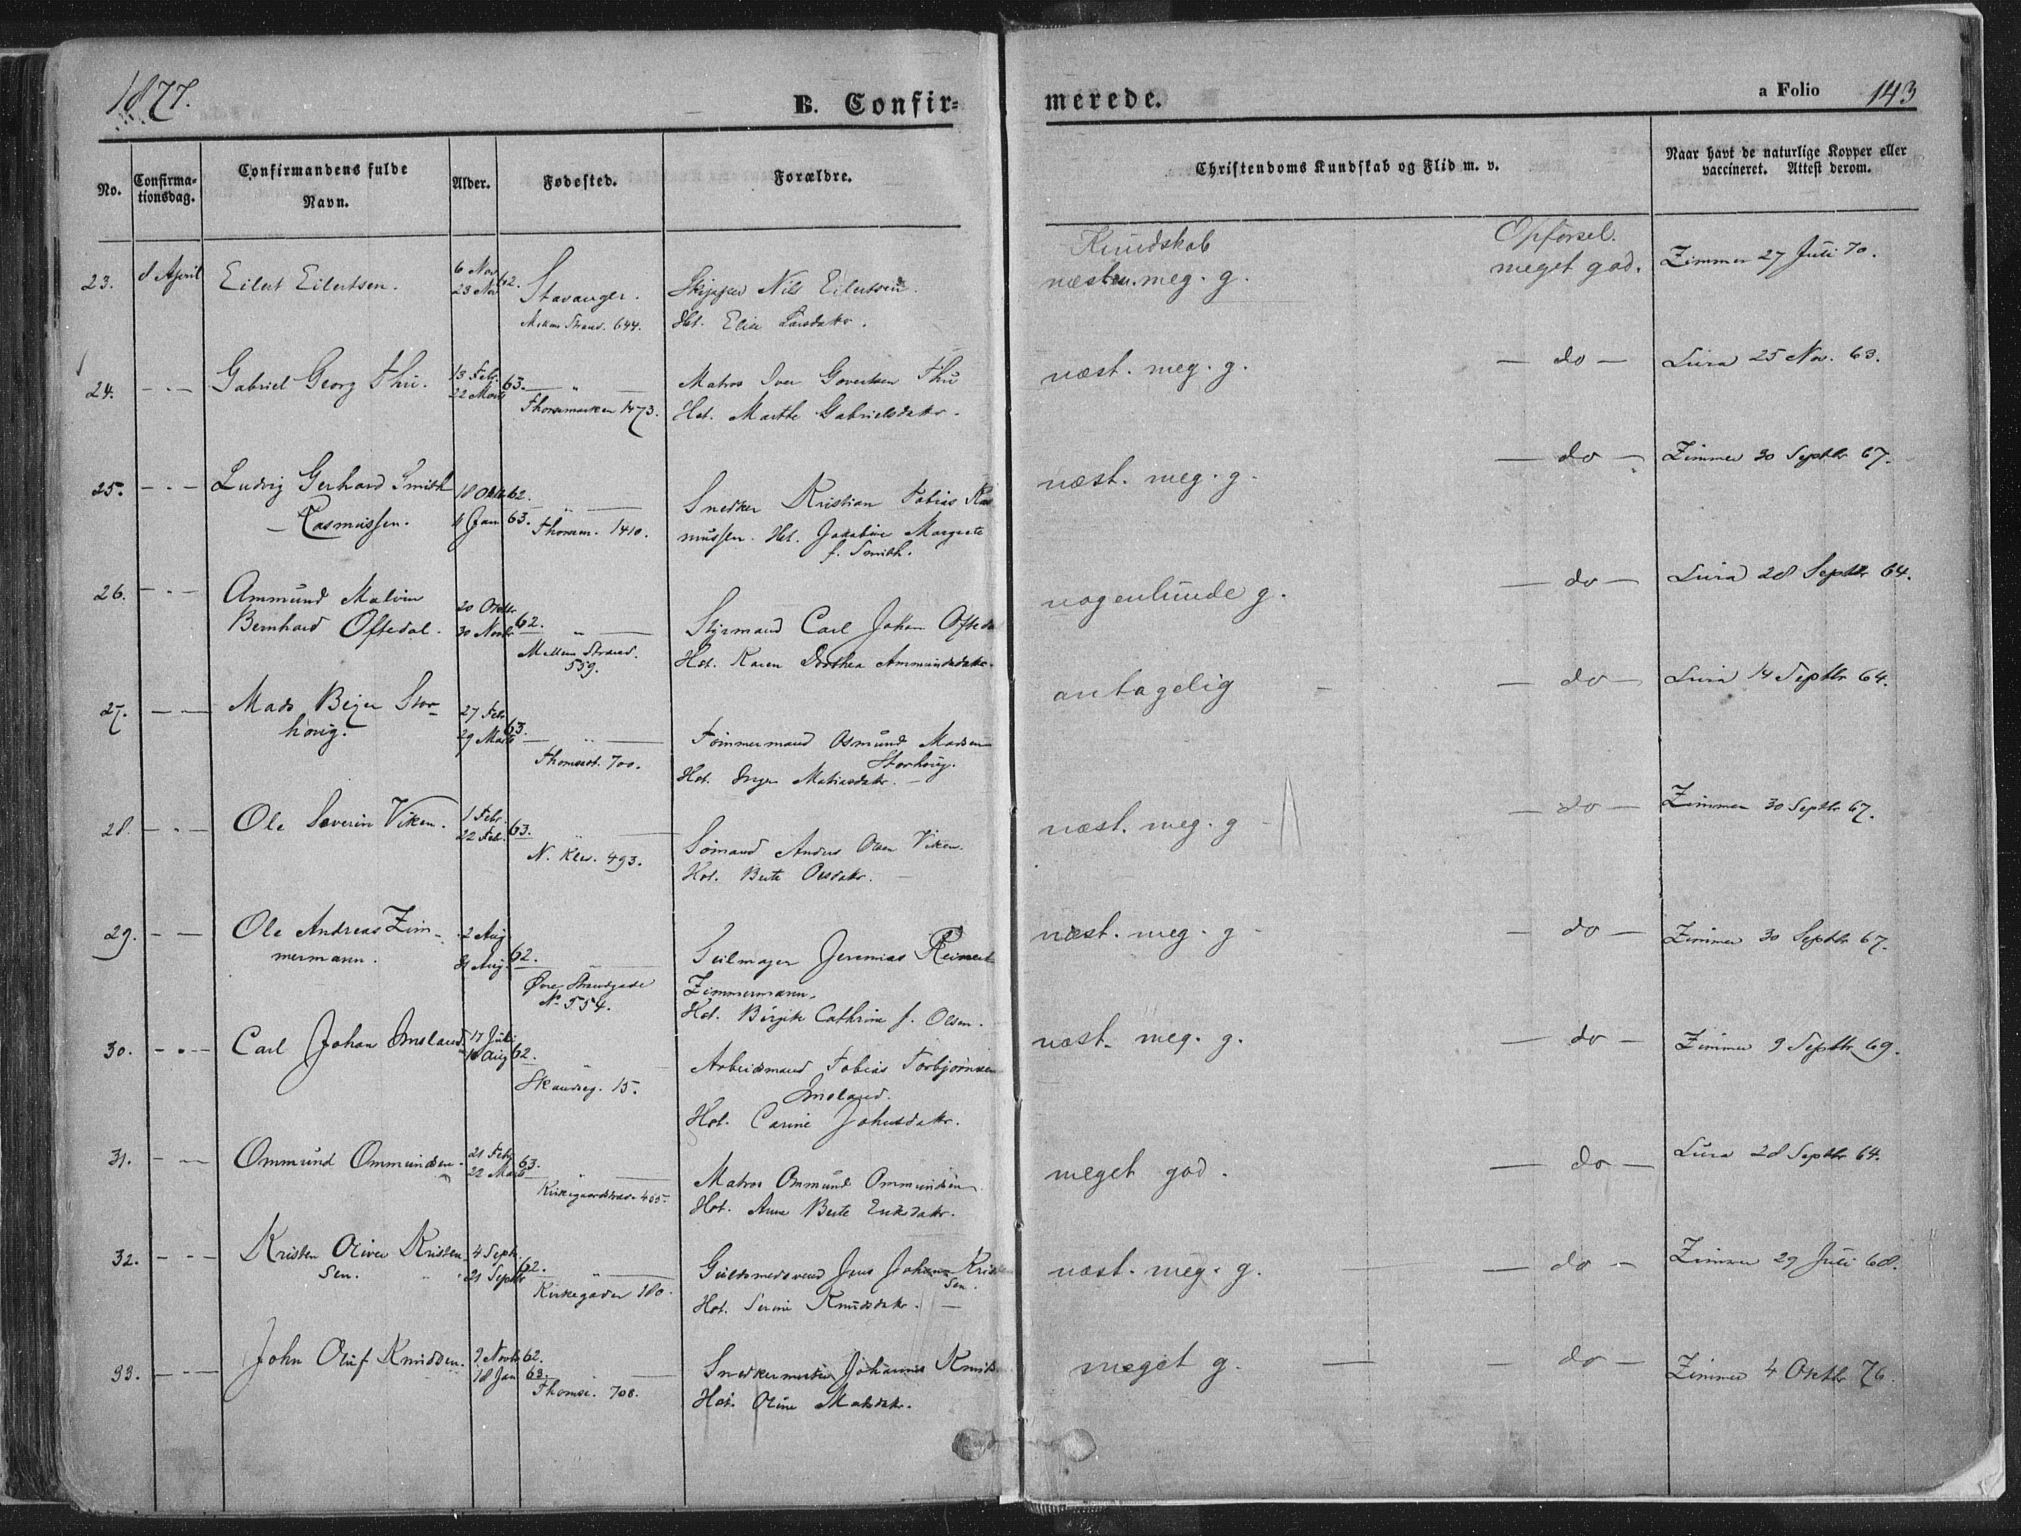 1877.
B. Confir-
merede.
a Folio 143
No.
Confirma-
tionsdag.
Confirmandens fulde
Navn.
Alder.
Fødested.
Forældre.
Christendoms Kundskab og Flid m. v.
Naar havt de naturlige Kopper eller
vaccineret. Attest derom.
Kundskab
Opførsel.
23. 8 April Eilert Eilertsen. 6 Nov 62. Stavanger. Skipper Nils Eilertsen. næsten meg. g. meget god. Zimmer 27 Juli 70.
23 Nov
Mellem Strand. 644. Hst. Elise Larsdatr.
24. - " - Gabriel Georg Thu. 13 Febr. 63. — " — Matros Iver Govertsen Thu næst. meg. g. — do — Lura 25 Nov. 63.
22 Marts Thomsmarken 1473. Hst. Marthe Gabrielsdatr.
25. - - - Ludvig Gerhard Smith 18 Oktbr 62. — " — Snedker Kristian Tobias Ras næst. meg. g. — do — Zimmer 30 Septbr 67.
— Rasmussen. 1 Jan 63. Thomsm. 1410. mussen. Hst. Jakobine Margrete
f. Smith.
26. - " - Ammund Malvin 20 Oktbr 62. — " — Styrmand Carl Johan Oftedal nogenlunde g. — do — Lura 28 Septbr 64.
Bernhard Oftedal. 30 Novbr Mellem Strand. Hst. Karen Dorthea Ammundsdatr.
559.
27. - " - Mads Bejer Stor- 27 Febr 63. — " — Tømmermand Osmund Madsen antagelig — do — Lura 14 Septbr 64.
houg. 29 Marts Storhoug.
Thomsest. 700. Hst. Inger Matiasdatr.
28. - " - Ole Severin Viken. 1 Febr. 63. — " — Sømand Anders Olsen Viken. næst. meg. g. — do — Zimmer 30 Septbr 67.
22 Febr. N. Klev. 493. Hst. Berte Olesdatr.
29. - - Ole Andreas Zim- 2 Aug 62. — " — Seilmager Jeremias Reinert næst. meg. g. — do — Zimmer 30 Septbr 67.
mermann. 31 Aug. Øvre Strandgade Zimmermann.
No 554. Hst. Birgite Cathrine f. Olsen.
30. - " - Carl Johan Imsland 17 Juli 62. — " — Arbeidsmand Tobias Torbjørnsen næst. meg. g. — do — Zimmer 9 Septbr 69.
10 Aug Skandseg. 15. Imsland.
Hst. Carine Johnsdatr.
31. - - - Ommund Ommundsen. 21 Febr 63. " Matros Ommund Ommundsen meget god. — do — Lura 28 Septbr 64.
22 Marts Kirkegaardsvei 405. Hst. Anne Berte Eriksdatr.
32. - - - Kristen Oliver Kristen 4 Septr. 62. — " — Guldsmedsvend Jens Johan Kristen næst. meg. g. — do — Zimmer 29 Juli 68.
sen. 21 Septbr Kirkegaden 180. sen.
Hst. Serine Knudsdatr. —
33. - - - John Oluf Knudsen. 9 Novbr 62. " Snedkermester Johannes Knuds meget g. — do — Zimmer 4 Oktbr 76.
18 Jan 63. Thomse. 708. Hst. Oline Matsdatr.